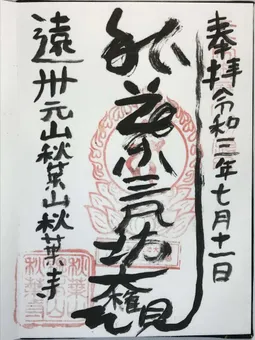 奉拝 令和三年七月十一日
秋葉三尺坊大権現
遠州元山秋葉山秋葉寺